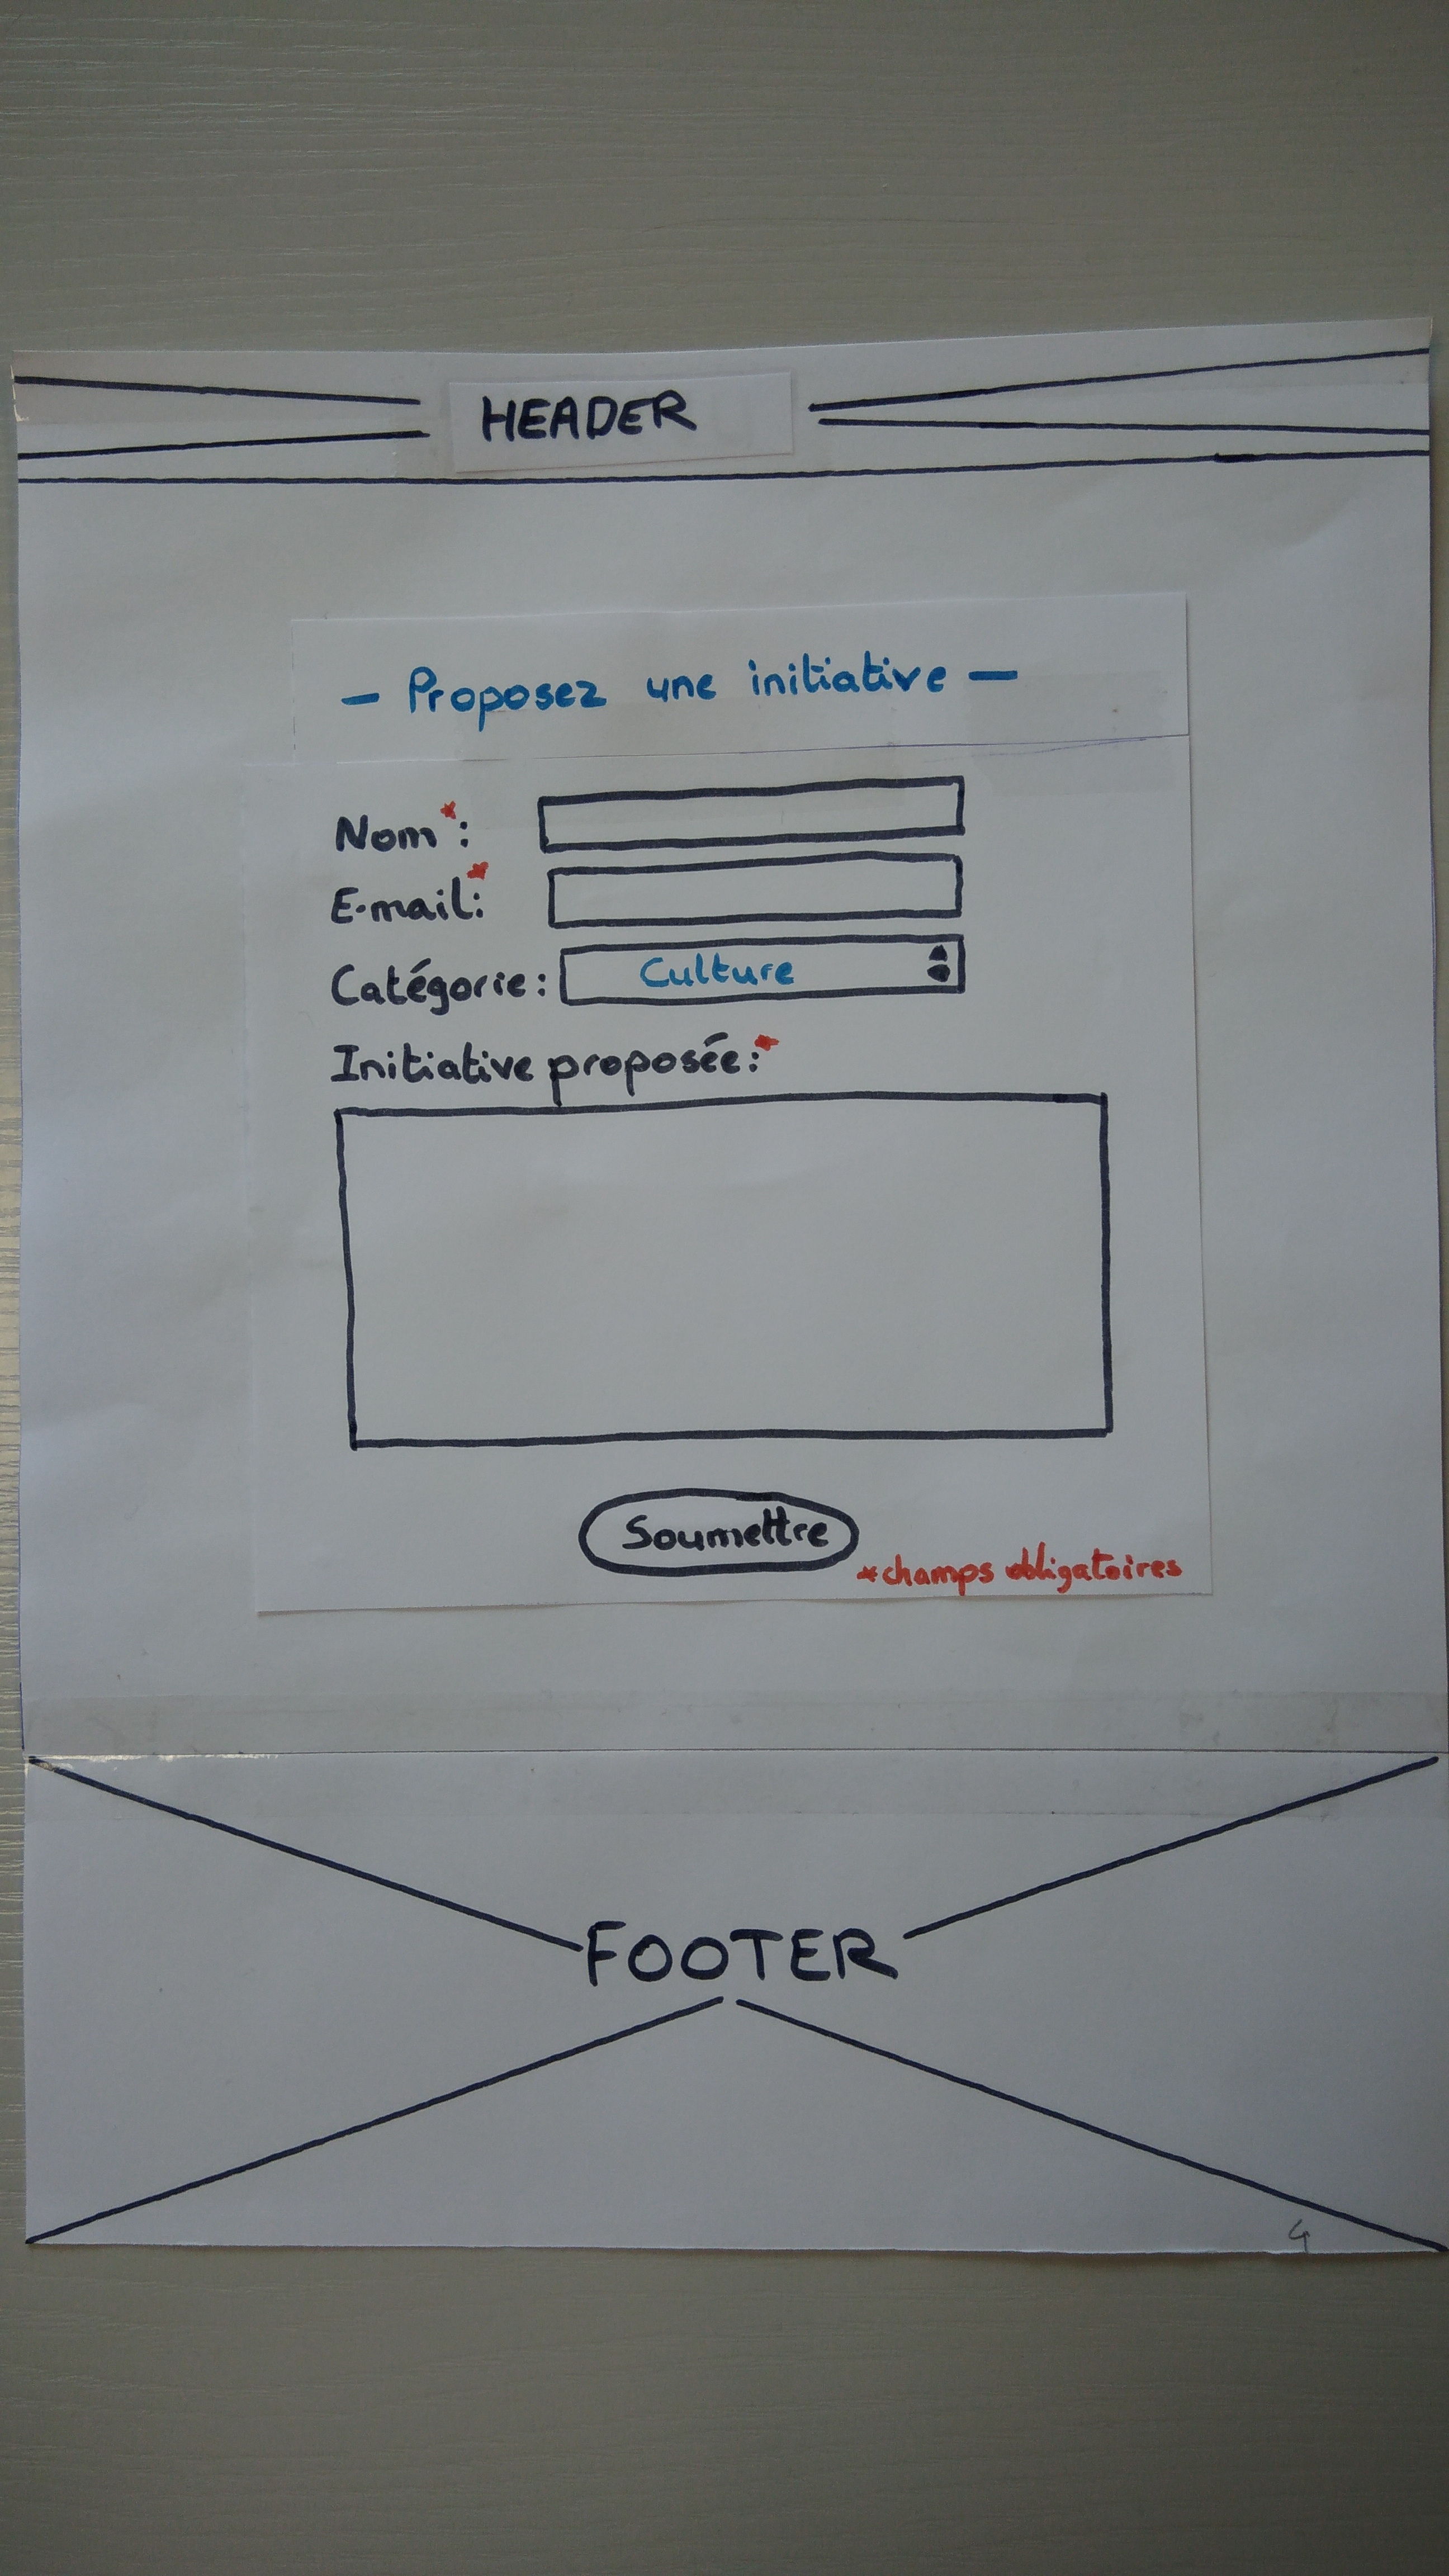 HEADER
- Proposez une initiative -
Nom*:
E-mail:*
Catégorie: Culture
Initiative proposée:*
Soumettre
*champs obligatoires
FOOTER